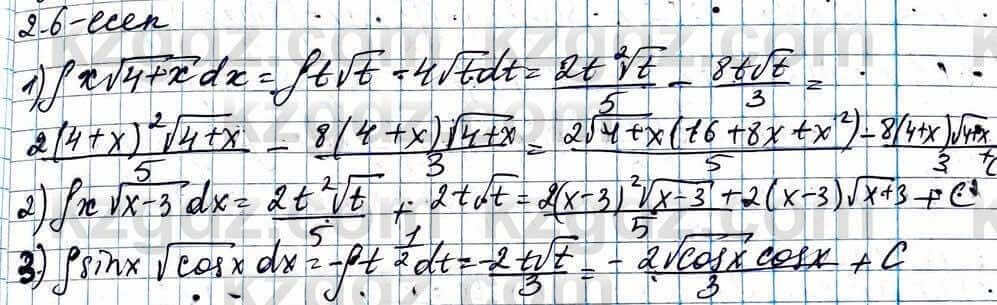 2.6-есеп
1) ∫x√4+x dx = ∫t√t - 4√t dt = 2t²√t/5 - 8t√t/3 =
2(4+x)²√4+x/5 - 8(4+x)√4+x/3 = 2√4+x(16+8x+x²)/5 - 8(4+x)√4+x/3 + C
2) ∫x√x-3 dx = 2t²√t/5 + 2t√t = 2(x-3)²√x-3/5 + 2(x-3)√x+3 + C
3) ∫sinx √cosx dx = -∫t^1/2 dt = -2t√t/3 = -2√cosx cosx/3 + C